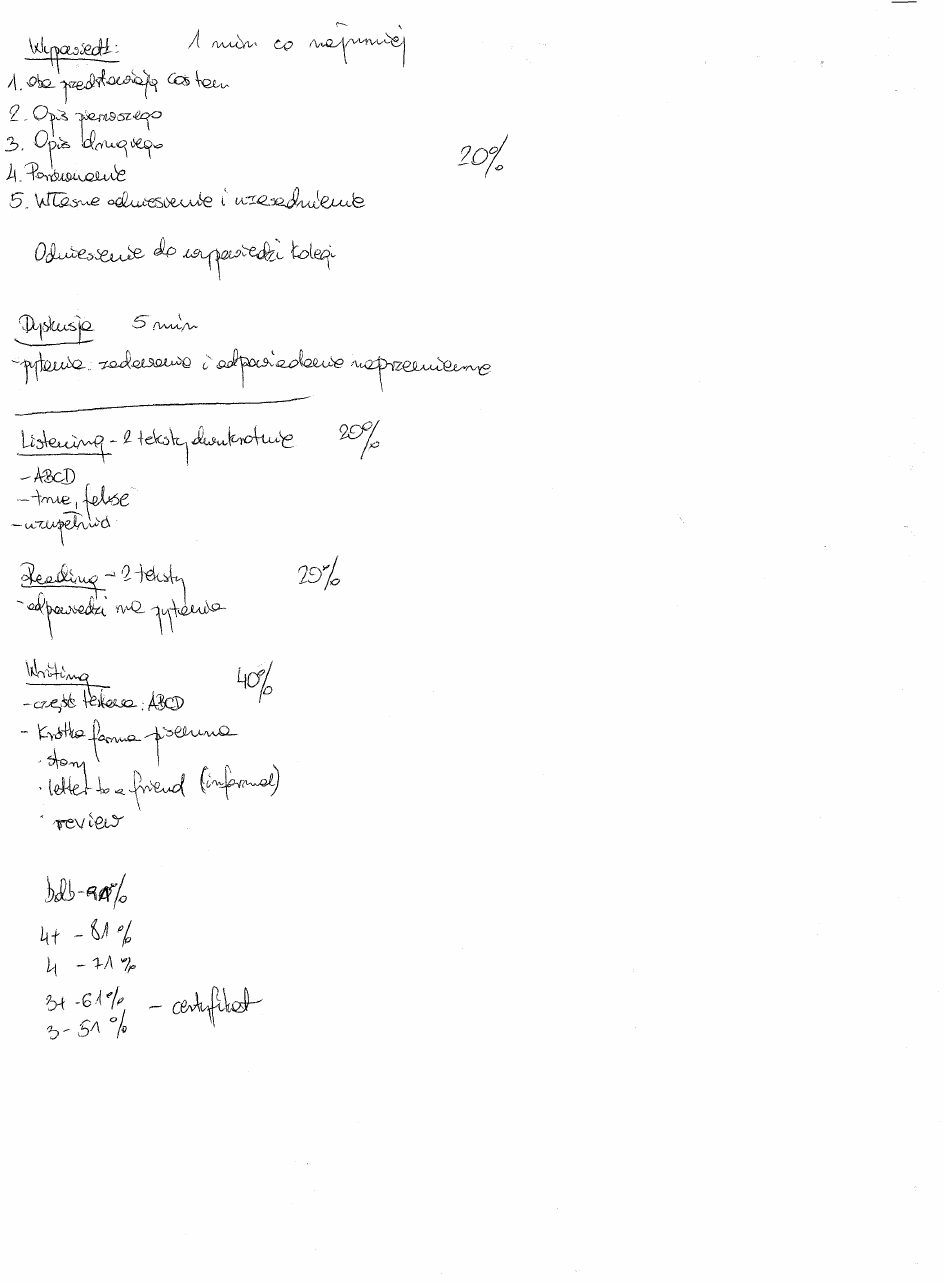 Wypowiedź: 1 min co najmniej
1. oba przedstawiają coś tam
2. Opis pierwszego
3. Opis drugiego
20%
4. Porównanie
5. Własne odniesienie i uzasadnienie
Odniesienie do wypowiedzi kolegi
Dyskusja 5 min
- pytania: zadawanie i odpowiadanie naprzemienne
Listening - 2 teksty dwukrotnie 20%
- ABCD
- true, false
- uzupełnić
Reading - 2 teksty 20%
- odpowiedzi na pytania
Writing 40%
- część testowa: ABCD
- Krótka forma pisemna
· story
· letter to a friend (informal)
· review
bdb - 91%
4+ - 81%
4 - 71%
3+ - 61% - certyfikat
3 - 51%